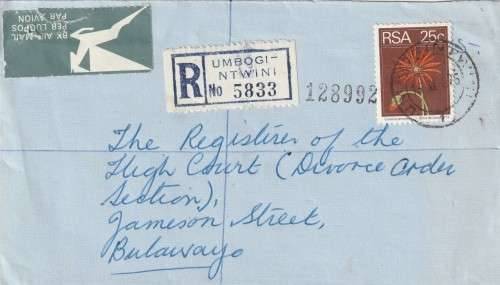 BY AIR MAIL
PER LUGPOS
PAR AVION
R
UMBOGI-
NTWINI
No 5833
128992
RSA 25c
The Registirer of the
High Court (Divorce Order
Section),
Jameson Street,
Bulawayo